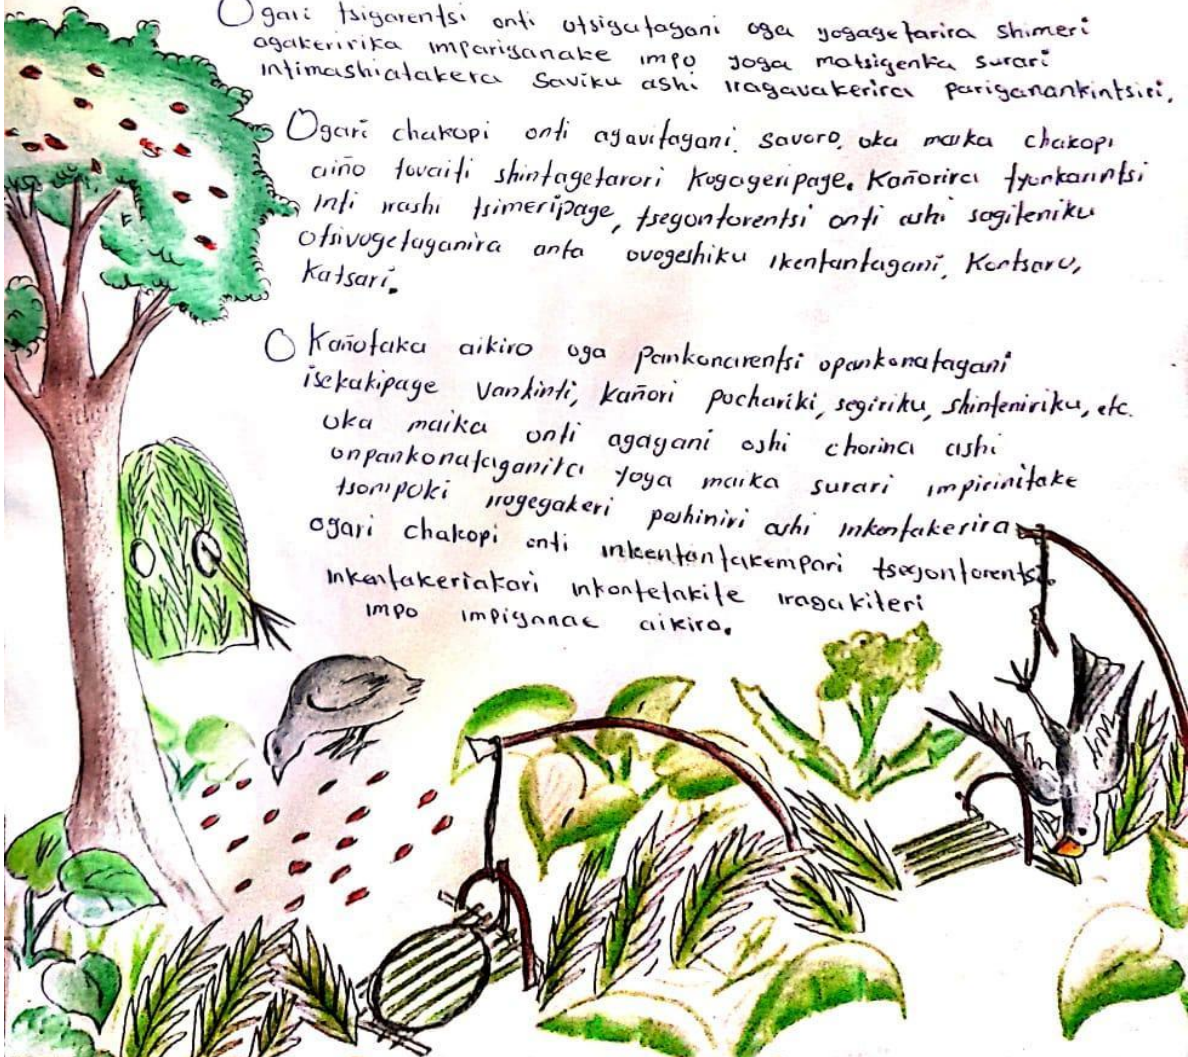 Ogari tsigarentsi onti otsigatagani oga yogagetarira shimeri
ogakeririka impariganake impo yoga matsigenka surari
intimashiatakera saviku ashi iragavakerira pariganankintsiri.
Ogari chakopi onti agavitagani savoro, oka maika chakopi
aiño tovaiti shintagetarori kogageripage. Kañorira tyonkarintsi
inti irashi tsimeripage, tsegontorentsi onti ashi sagiteniku
otsivogetaganira anta ovogeshiku ikentantagani, Kontsaro,
Katsari.
O Kañotaka aikiro oga pankonarentsi opankonatagani
isekakipage vankinti, kañori pochariki, segiriku, shinteniriku, etc.
oka maika onti agagani oshi chorina ashi
onpankonataganira yoga maika surari impirinitake
tsonpoki irogegakeri poshiniri ashi inkentakerira
ogari chakopi onti inkentantakempari tsegontorentsi.
inkentakeriakari inkontetakite iragakiteri
impo impiganae aikiro.